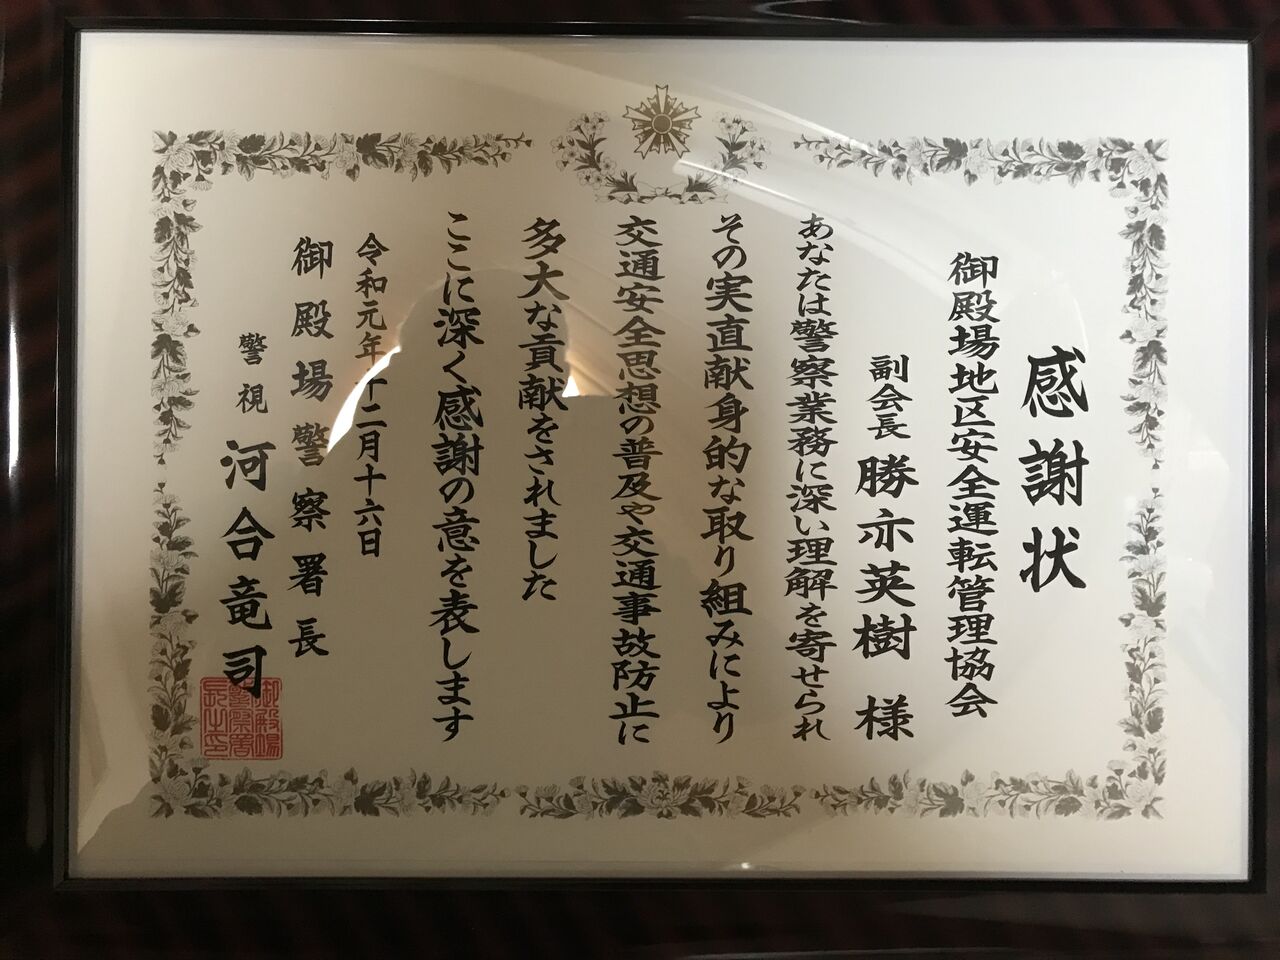 感謝状
御殿場地区安全運転管理協会
副会長 勝亦英樹 様
あなたは警察業務に深い理解を寄せられ
その実直献身的な取り組みにより
交通安全思想の普及や交通事故防止に
多大な貢献をされました
ここに深く感謝の意を表します
令和元年十二月十六日
御殿場警察署長
警視 河合竜司
御殿場警察署長之印